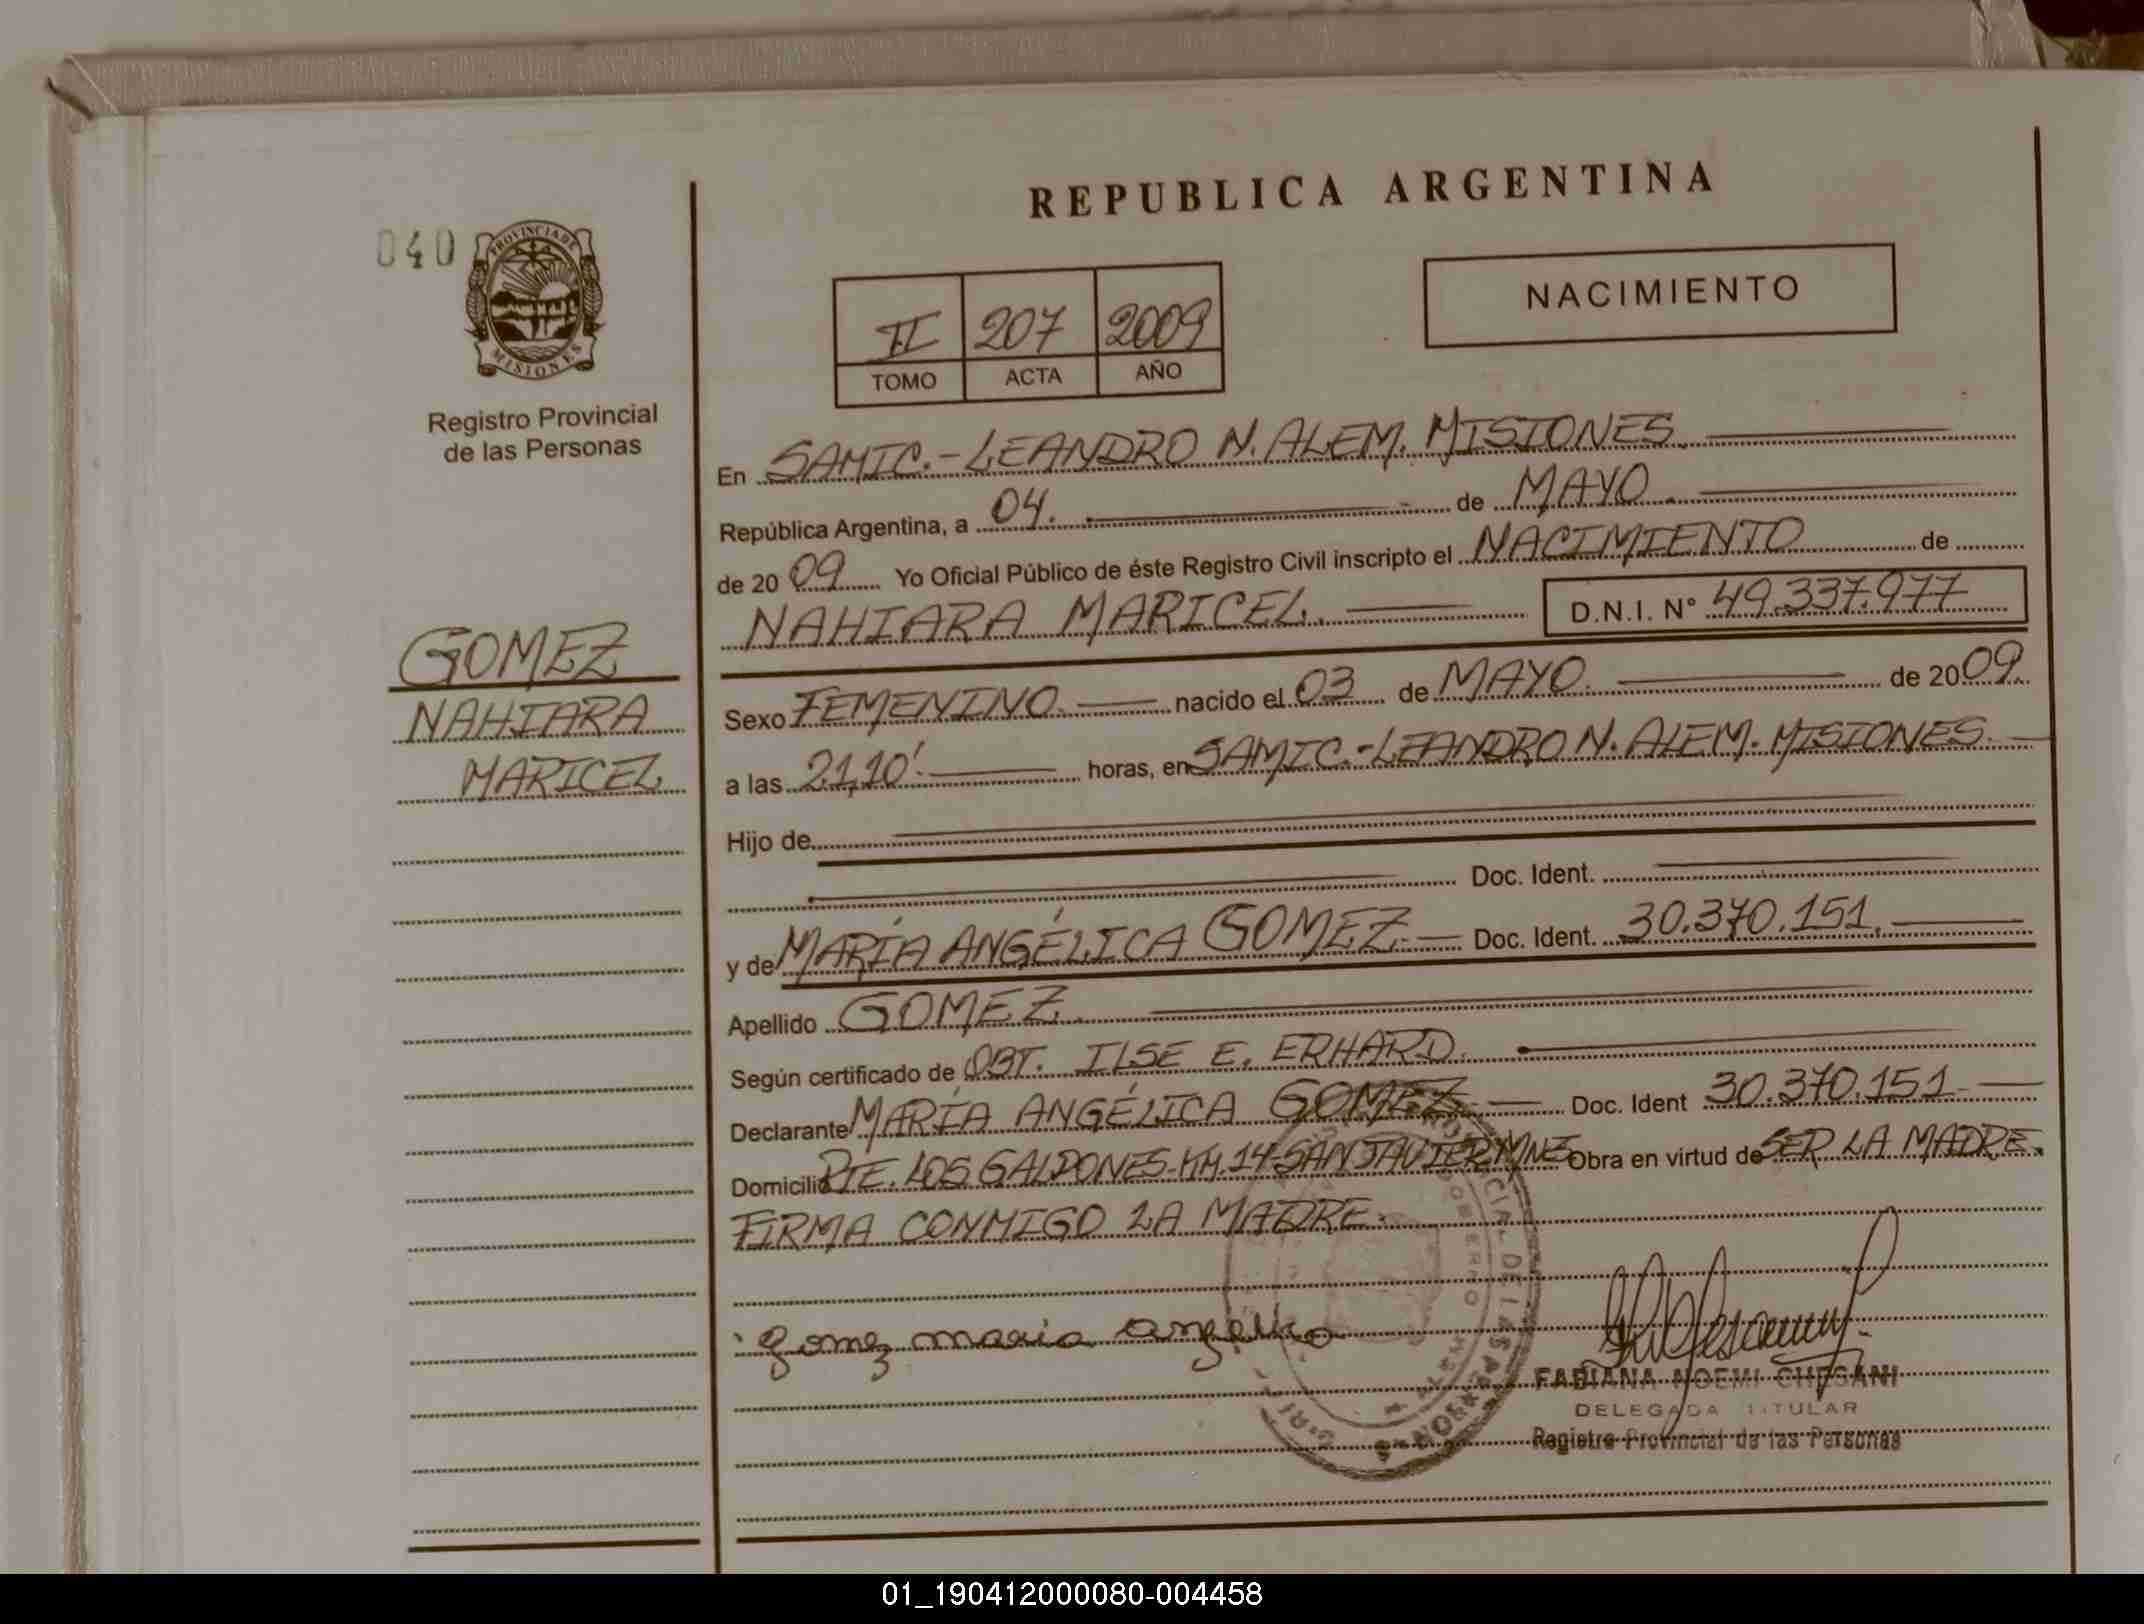 REPUBLICA ARGENTINA
040
PROVINCIA DE
MISIONES
Registro Provincial
de las Personas
II 207 2009
TOMO ACTA AÑO
NACIMIENTO
En SAMIC.-LEANDRO N. ALEM. MISIONES.
República Argentina, a 04. de MAYO.
de 20 09 Yo Oficial Público de éste Registro Civil inscripto el NACIMIENTO de
NAHIARA MARICEL. D.N.I. N° 49.337.977
GOMEZ
NAHIARA
MARICEL
Sexo FEMENINO. nacido el 03 de MAYO. de 20 09.
a las 21,10'. horas, en SAMIC.-LEANDRO N. ALEM. MISIONES.
Hijo de
Doc. Ident.
y de MARÍA ANGÉLICA GOMEZ.- Doc. Ident. 30.370.151.
Apellido GOMEZ.
Según certificado de OBT. ILSE E. ERHARD.
Declarante MARÍA ANGÉLICA GOMEZ.- Doc. Ident 30.370.151-
Domicilio PTE. LOS GALPONES-KM.14-SAN JAVIER MNES Obra en virtud de SER LA MADRE.
FIRMA CONMIGO LA MADRE.
Gomez maria angelica
FABIANA NOEMI CHESANI
DELEGADA TITULAR
Registro Provincial de las Personas
01_190412000080-004458